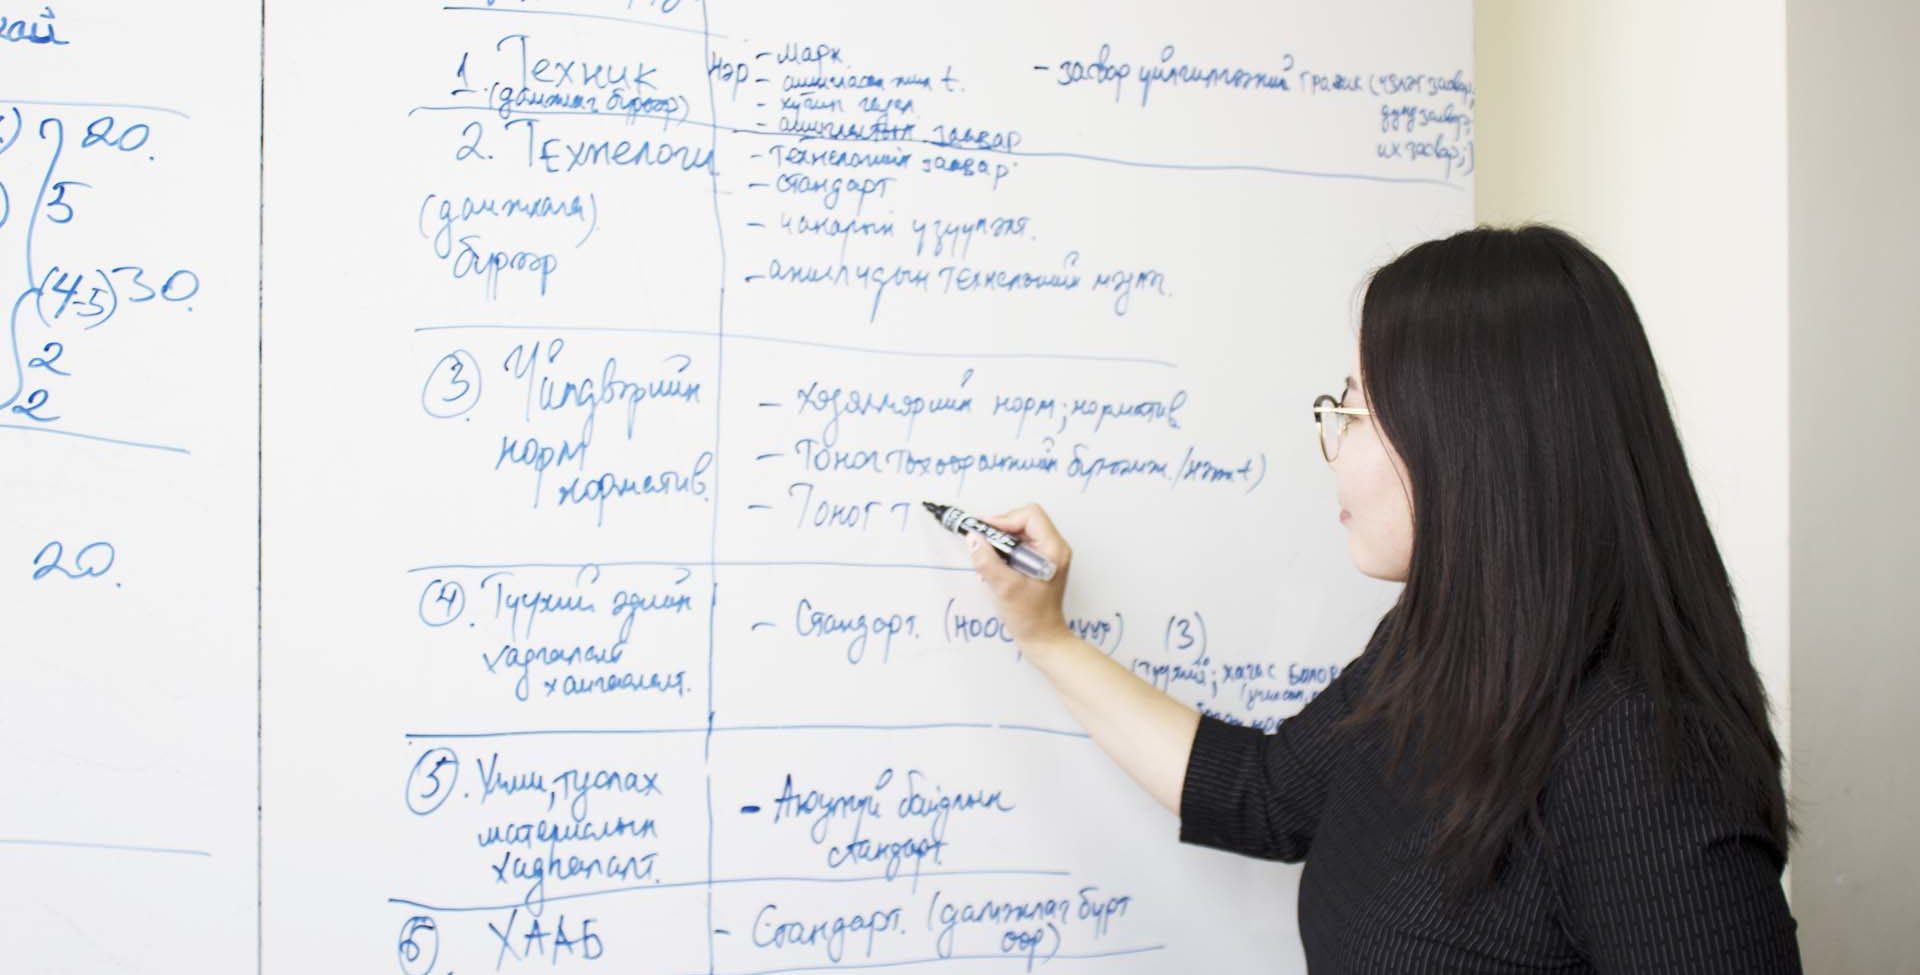 20.
5
(4-5) 30.
2
2
20.
1. Техник
(дамжлаг бүрээр)
нэр - марк
- хүчин чадал
- ашиглалтын заавар
- засвар үйлчилгээний график (үзлэг засвар;
дунд засвар;
их засвар;)
2. Технологи
(дамжлага)
бүрээр
- технологийн заавар
- стандарт
- чанарын үзүүлэлт.
- ажилчдын технологийн мэдлэг.
3. Үйлдвэрийн
норм
норматив.
- Хөдөлмөрийн норм; норматив
- Тоног төхөөрөмжийн
- Тоног т
4. Түүхий эдийн
хадгалалт
хамгаалалт.
- Стандарт. (ноос, (3)
(түүхий; хагас
5. Хими, туслах
материалын
хадгалалт.
- Аюулгүй байдлын
стандарт.
6 ХААБ
- Стандарт. (дамжлаг бүрт
өөр)